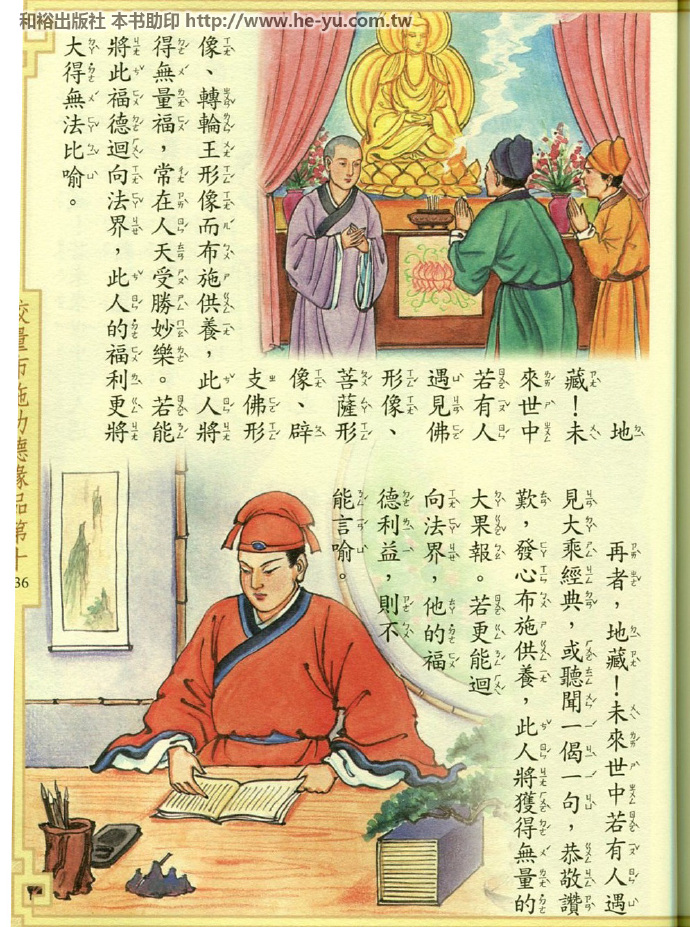 和裕出版社 本書助印 http://www.he-yu.com.tw
地
藏！未
來世中
若有人
遇見佛
形像、
菩薩形
像、辟
支佛形
像、轉輪王形像而布施供養，此人將
得無量福，常在人天受勝妙樂。若能
將此福德迴向法界，此人的福利更將
大得無法比喻。
再者，地藏！未來世中若有人遇
見大乘經典，或聽聞一偈一句，恭敬讚
歎，發心布施供養，此人將獲得無量的
大果報。若更能迴
向法界，他的福
德利益，則不
能言喻。
校量布施功德緣品第十
36